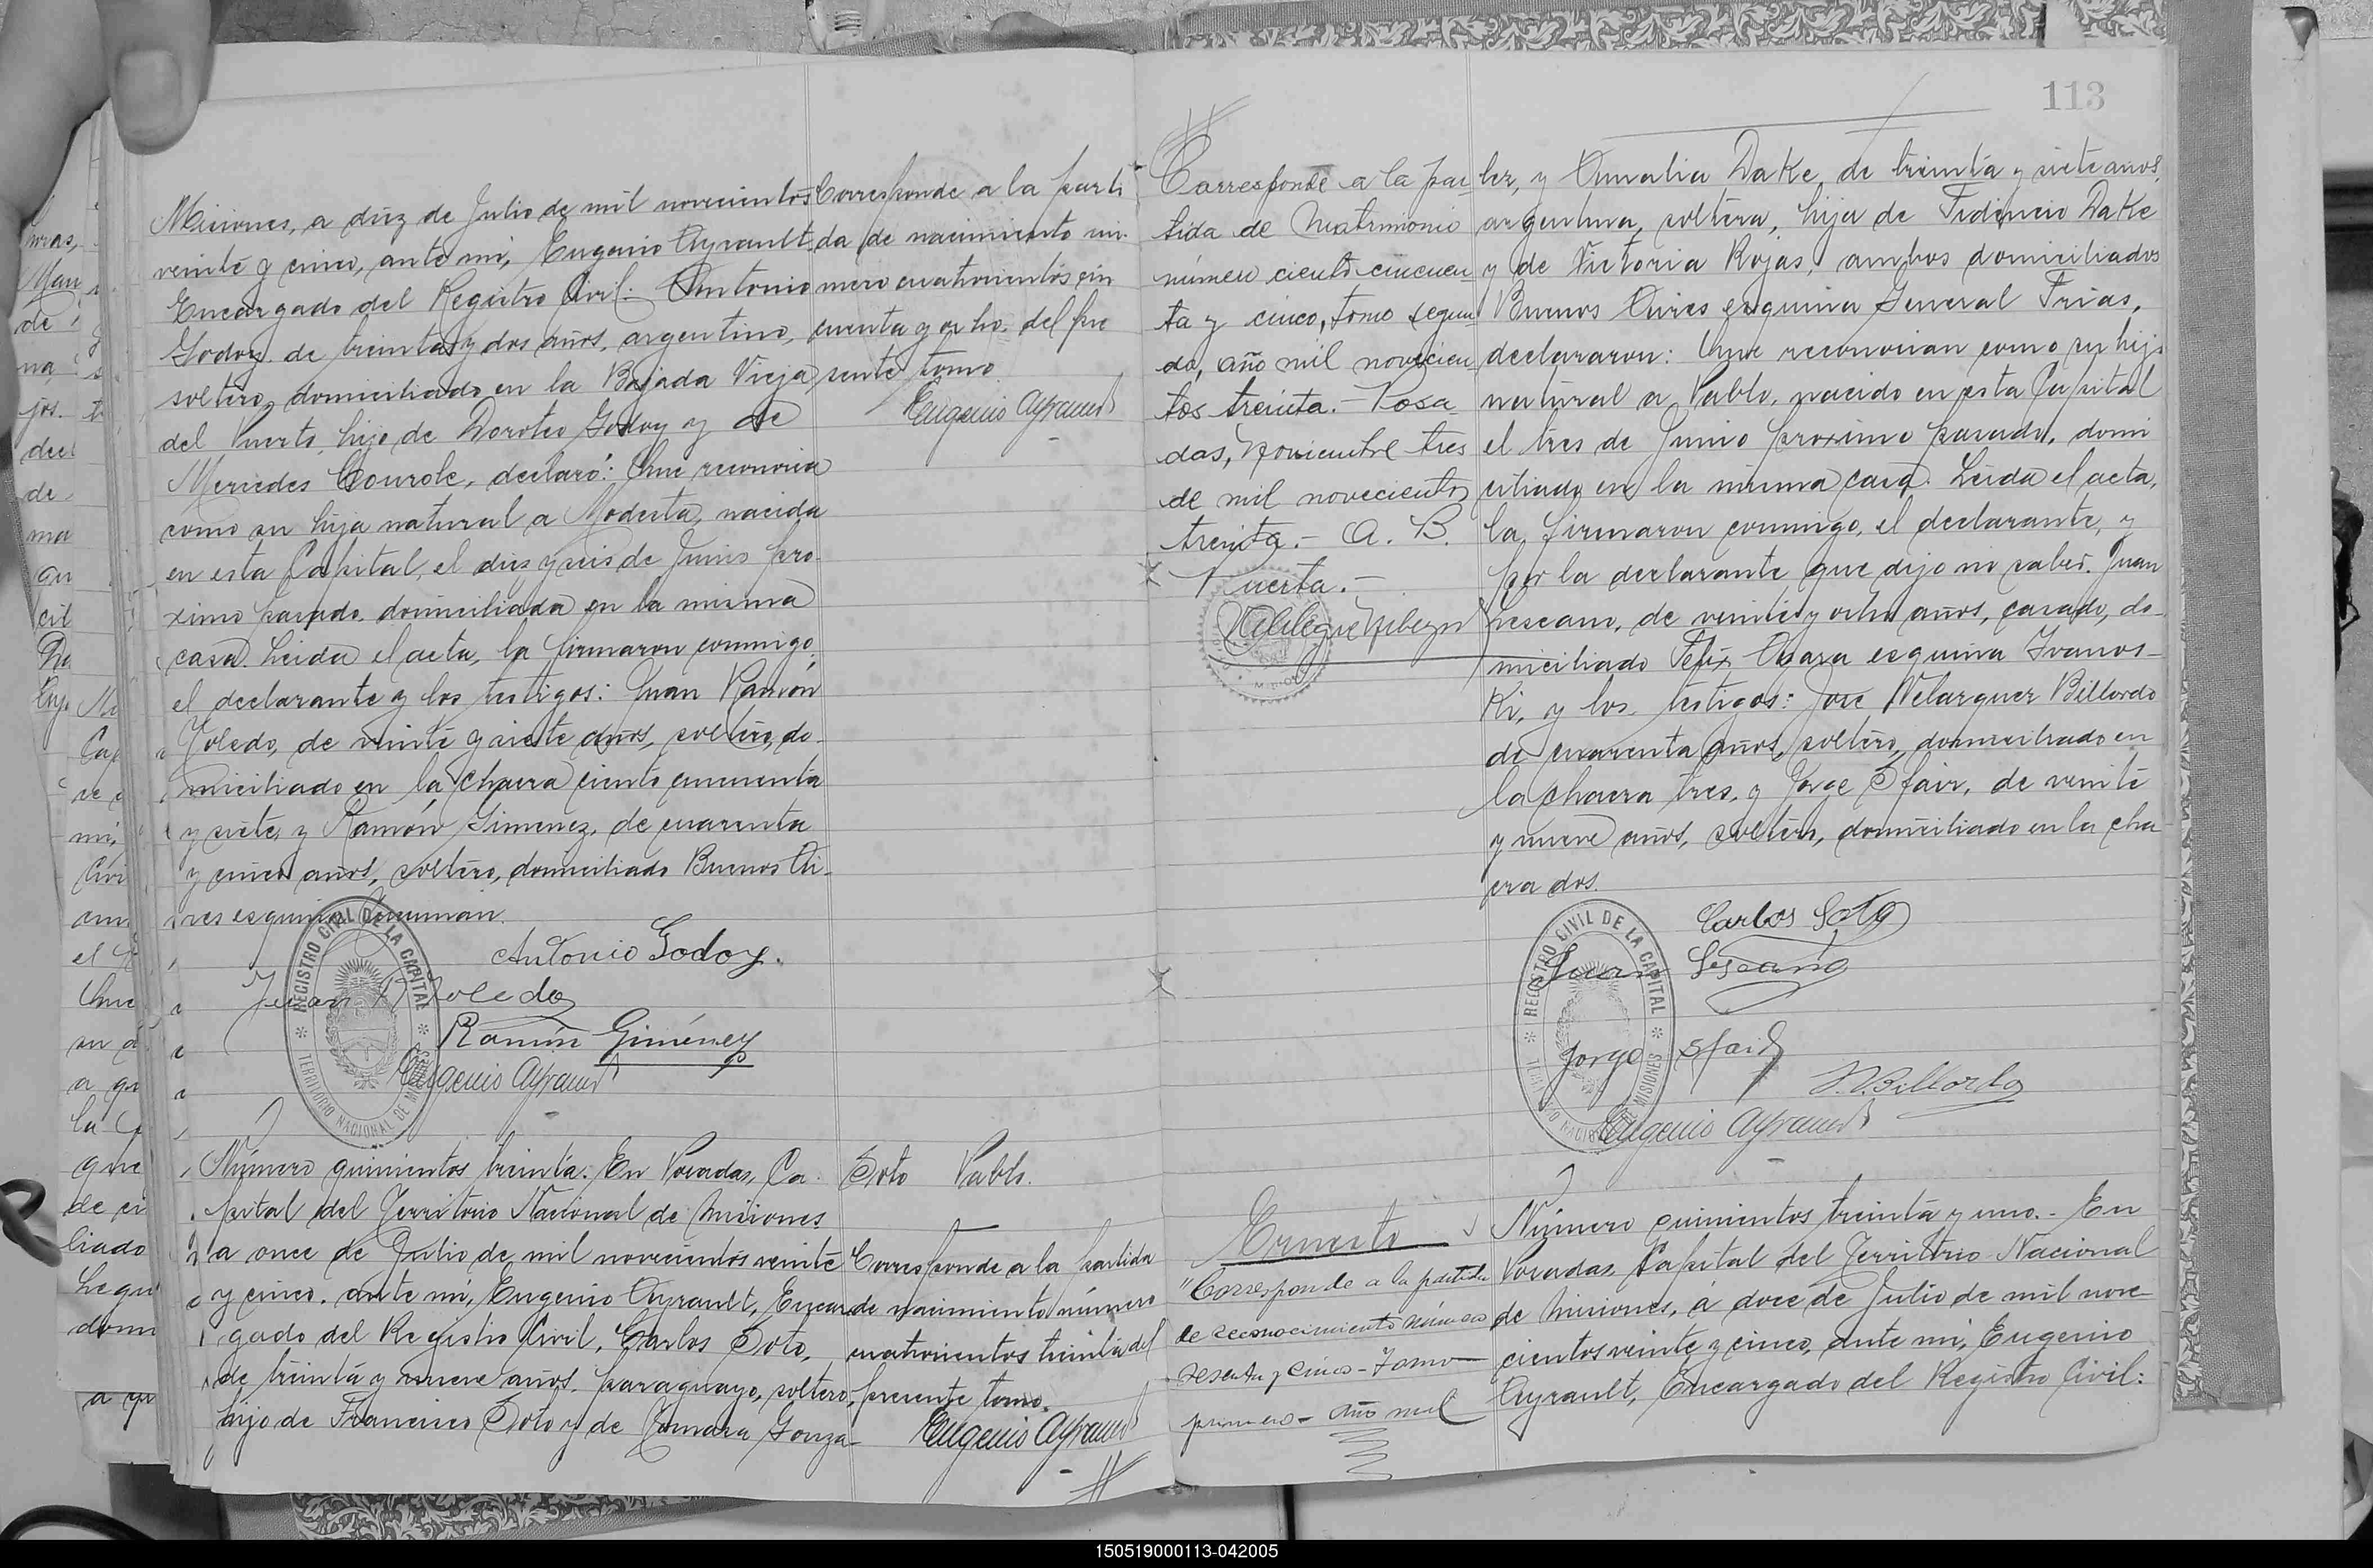 Misiones, a diez de Julio de mil novecientos
veinte y cinco, ante mi, Eugenio Ayrault,
Encargado del Registro Civil: Antonio
Godoy, de treinta y dos años, argentino,
soltero, domiciliado en la Bajada Vieja
del Puerto, hijo de Doroteo Godoy y de
Mercedes, declaró: Que reconocia
como su hija natural a Modesta, nacida
en esta Capital, el diez y seis de Junio pro-
ximo pasado, domiciliada en la misma
casa. Leida el acta, la firmaron conmigo,
el declarante y los testigos: Juan Ramón
Toledo, de veinte y siete años, soltero, do-
miciliado en la chacra ciento cincuenta
y siete, y Ramón Gimenez, de cuarenta
y cinco años, soltero, domiciliado Buenos Ai-
res esquina Tucuman.
Antonio Godoy.
Juan R Toledo
Ramón Giménez
Eugenio Ayrault
REGISTRO CIVIL DE LA CAPITAL
TERRITORIO NACIONAL DE MISIONES
Corresponde a la parti
da de nacimiento nú-
mero cuatrocientos cin
cuenta y ocho del pre
sente tomo
Eugenio Ayrault
Número quinientos treinta. En Posadas, Ca-
pital del Territorio Nacional de Misiones
a once de Julio de mil novecientos veinte
y cinco, ante mi, Eugenio Ayrault, Encar
gado del Registro Civil, Carlos Soto,
de treinta y nueve años, paraguayo, soltero,
hijo de Francisco Soto y de Gonza-
Soto Pablo.
Corresponde a la partida
de nacimiento número
cuatrocientos treinta del
presente tomo.
Eugenio Ayrault
113
Corresponde a la par
tida de Matrimonio
número ciento cincuen
ta y cinco, tomo segun
do, año mil novecien
tos treinta.- Posa
das, Noviembre tres
de mil novecientos
treinta.- A. B.
Puerta.-
lez, y Amalia Dake, de treinta y siete años,
argentina, soltera, hija de Fidencio Dake
y de Victoria Rojas, ambos domiciliados
Buenos Aires esquina General Frias,
declararon: Que reconocian como su hijo
natural a Pablo, nacido en esta Capital
el tres de Junio proximo pasado, domi
ciliado en la misma casa. Leida el acta,
la firmaron conmigo, el declarante, y
por la declarante que dijo no saber. Juan
Lescano, de veinte y ocho años, casado, do-
miciliado Felix Azara esquina Ivanos-
ki, y los testigos: José Velazquez Billordo
de cuarenta años, soltero, domiciliado en
la chacra tres, y Jorge Sfair, de veinte
y nueve años, soltero, domiciliado en la cha
cra dos.
Carlos Soto
Juan Lescano
Jorge Sfair
V. Billordo
Eugenio Ayrault
REGISTRO CIVIL DE LA CAPITAL
TERRITORIO NACIONAL DE MISIONES
Ernesto
"Corresponde a la partida
de reconocimiento número
sesenta y cinco - Tomo
primero - año mil
Número quinientos treinta y uno.- En
Posadas, Capital del Territorio Nacional
de Misiones, á doce de Julio de mil nove-
cientos veinte y cinco, ante mi, Eugenio
Ayrault, Encargado del Registro Civil:
150519000113-042005